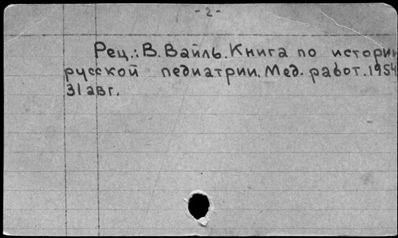 - 2 -
Рец.: В. Вайль. Книга по истории
русской педиатрии. Мед. работ. 1954
31 авг.